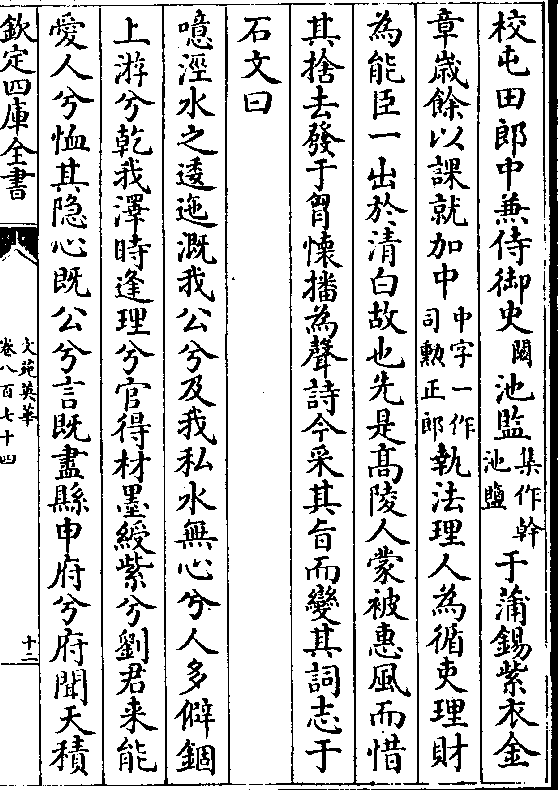 校屯田郎中兼侍御史闕池監集作幹池鹽于蒲錫紫衣金
章歲餘以課就加中中字一作司勲正郎執法理人為循吏理財
為能臣一出於清白故也先是髙陵人蒙被惠風而惜
其捨去發于胷懐播為聲詩今采其㫖而變其詞志于
石文曰
噫涇水之逶迤溉我公兮及我私水無心兮人多僻錮
上游兮乾我澤時逢理兮官得材墨綬紫兮劉君来能
愛人兮恤其隐心既公兮言既盡縣申府兮府聞天積
欽定四庫全書
文苑英華
卷八百七十四
十二